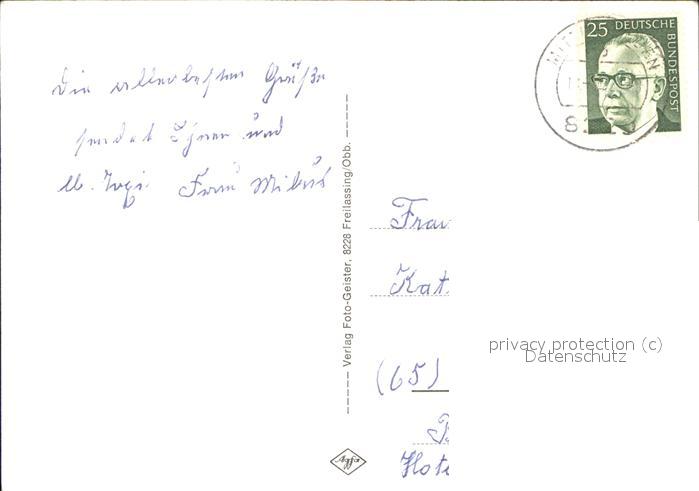 Die allerbesten Grüße
sendet Ihnen und
lb.
25 DEUTSCHE
BUNDESPOST
Verlag Foto-Geister, 8228 Freilassing/Obb.
Frau
Kat
(65)
Hote
Agfa
privacy protection (c)
Datenschutz